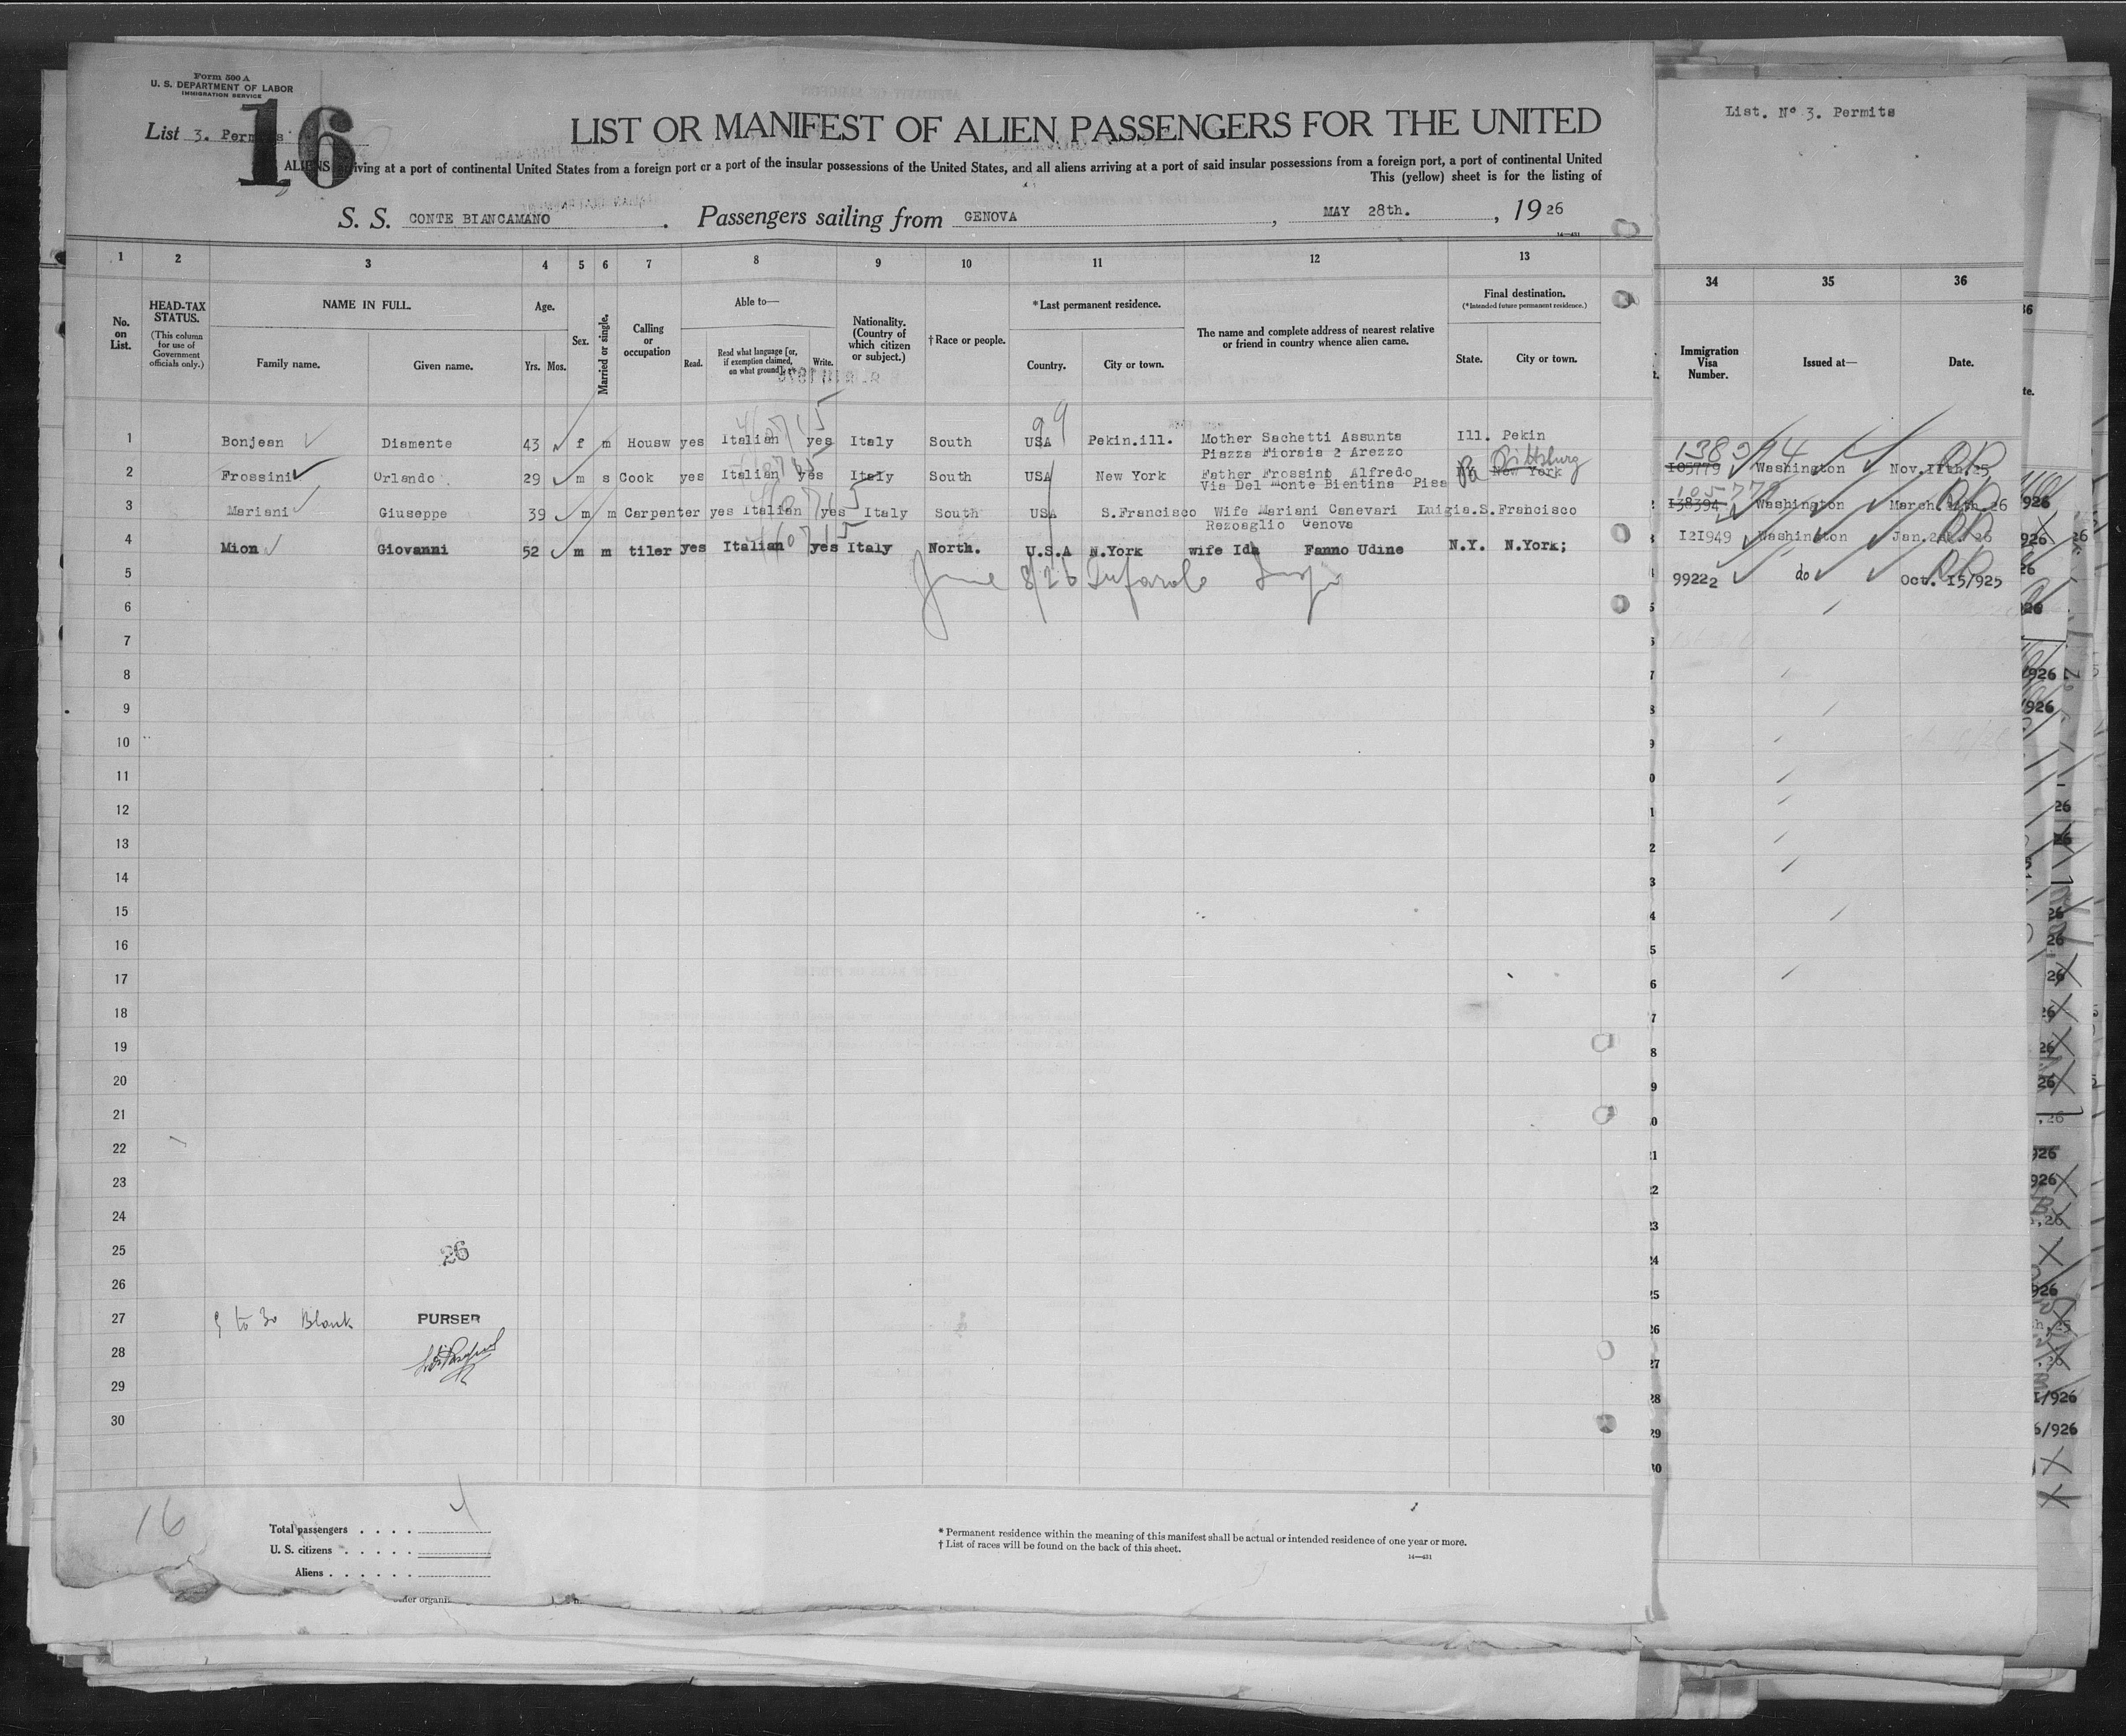 Form 500 A
U. S. DEPARTMENT OF LABOR
IMMIGRATION SERVICE
List 3. Permits
16
LIST OR MANIFEST OF ALIEN PASSENGERS FOR THE UNITED
ALIENS arriving at a port of continental United States from a foreign port or a port of the insular possessions of the United States, and all aliens arriving at a port of said insular possessions from a foreign port, a port of continental United
This (yellow) sheet is for the listing of
S. S. CONTE BIANCAMANO. Passengers sailing from GENOVA, MAY 28th., 1926
14—431
List. Nº 3. Permits
1 2 3 4 5 6 7 8 9 10 11 12 13 34 35 36
No. on List.
HEAD-TAX STATUS.
(This column for use of Government officials only.)
NAME IN FULL.
Family name. Given name.
Age.
Yrs. Mos.
Sex.
Married or single.
Calling or occupation
Able to—
Read. Read what language [or, if exemption claimed, on what ground]. Write.
Nationality. (Country of which citizen or subject.)
†Race or people.
*Last permanent residence.
Country. City or town.
The name and complete address of nearest relative or friend in country whence alien came.
Final destination.
(*Intended future permanent residence.)
State. City or town.
Immigration Visa Number.
Issued at—
Date.
1 Bonjean Diamente 43 f m Housw yes Italian yes Italy South USA Pekin.ill. Mother Sachetti Assunta Ill. Pekin
Piazza Fioraia 2 Arezzo
138394
105779 Washington Nov.11th.25,
2 Frossini Orlando 29 m s Cook yes Italian yes Italy South USA New York Father Frossino Alfredo Pa New York Pittsburg
Via Del Monte Bientina Pisa
105779
138394 Washington March.4th.26
3 Mariani Giuseppe 39 m m Carpenter yes Italian yes Italy South USA S.Francisco Wife Mariani Canevari Luigia.S.Francisco
Rezoaglio Genova
I2I949 Washington Jan. 26
4 Mion Giovanni 52 m m tiler yes Italian yes Italy North. U.S.A N.York wife Ida Fanno Udine N.Y. N.York;
99222 do Oct. I5/925
June 8/26
5
6
7
8
9
10
11
12
13
14
15
16
17
18
19
20
21
22
23
24
25
26
26
27 5 to 30 Blank PURSER
28
29
30
16
Total passengers . . . . 4
U. S. citizens . . . . .
Aliens . . . . . .
* Permanent residence within the meaning of this manifest shall be actual or intended residence of one year or more.
† List of races will be found on the back of this sheet.
14—431